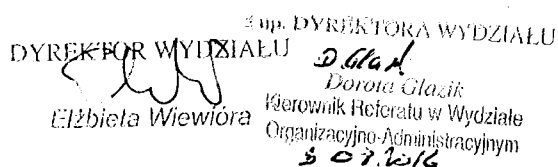 DYREKTOR WYDZIAŁU
Elżbieta Wiewióra
z up. DYREKTORA WYDZIAŁU
Dorota Glazik
Kierownik Referatu w Wydziale
Organizacyjno-Administracyjnym